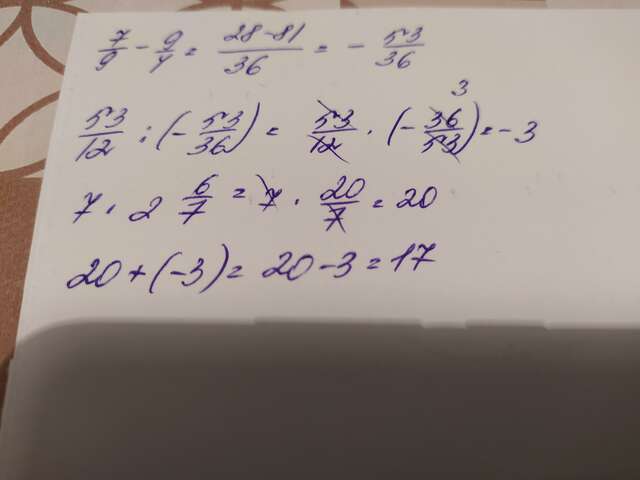 7/9 - 9/4 = 28-81/36 = - 53/36
53/12 : (- 53/36) = 53/12 · (- 36/53) = -3 3
7 · 2 6/7 = 7 · 20/7 = 20
20 + (-3) = 20 - 3 = 17